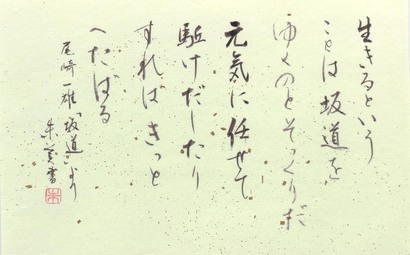 生きるという
ことは坂道を
ゆくのとそっくりだ
元気に任せて
駈けだしたり
すればきっと
へたばる
尾崎一雄「坂道」より
朱美書
朱